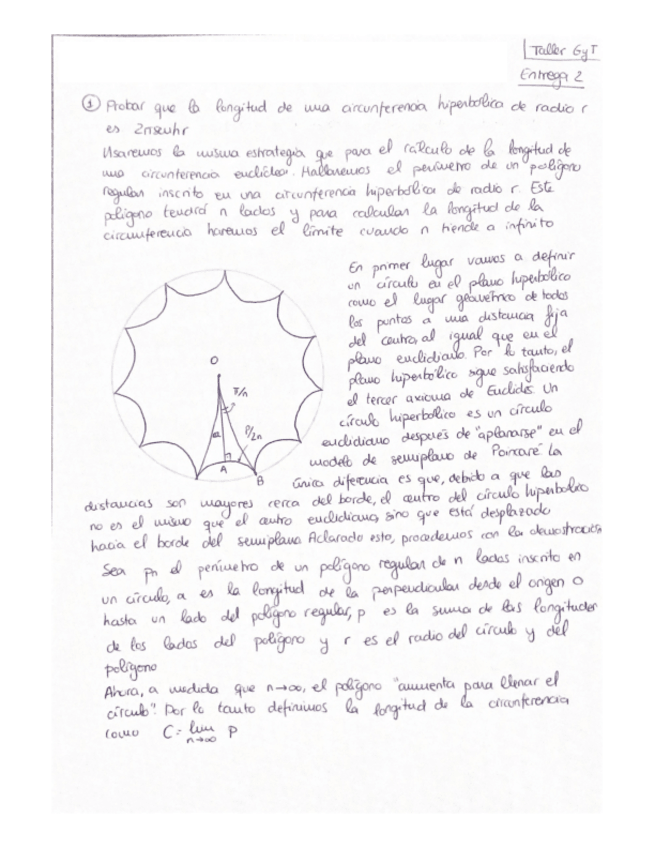 Taller GyT
Entrega 2
① Probar que la longitud de una circunferencia hiperbólica de radio r
es 2πsenhr
Usaremos la misma estrategia que para el cálculo de la longitud de
una circunferencia euclídea. Hallaremos el perímetro de un polígono
regular inscrito en una circunferencia hiperbólica de radio r. Este
polígono tendrá n lados y para calcular la longitud de la
circunferencia haremos el límite cuando n tiende a infinito
En primer lugar vamos a definir
un círculo en el plano hiperbólico
como el lugar geométrico de todos
los puntos a una distancia fija
del centro, al igual que en el
plano euclidiano. Por lo tanto, el
plano hiperbólico sigue satisfaciendo
el tercer axioma de Euclides. Un
círculo hiperbólico es un círculo
euclidiano después de "aplanarse" en el
modelo de semiplano de Poincaré. La
única diferencia es que, debido a que las
distancias son mayores cerca del borde, el centro del círculo hiperbólico
no es el mismo que el centro euclidiano, sino que está desplazado
hacia el borde del semiplano. Aclarado esto, procedemos con la demostración
O
π/n
a
P/2n
A
B
Sea pn el perímetro de un polígono regular de n lados inscrito en
un círculo, a es la longitud de la perpendicular desde el origen O
hasta un lado del polígono regular, p es la suma de las longitudes
de los lados del polígono y r es el radio del círculo y del
polígono
Ahora, a medida que n→∞, el polígono "aumenta para llenar el
círculo". Por lo tanto definimos la longitud de la circunferencia
como C = lim P
n→∞